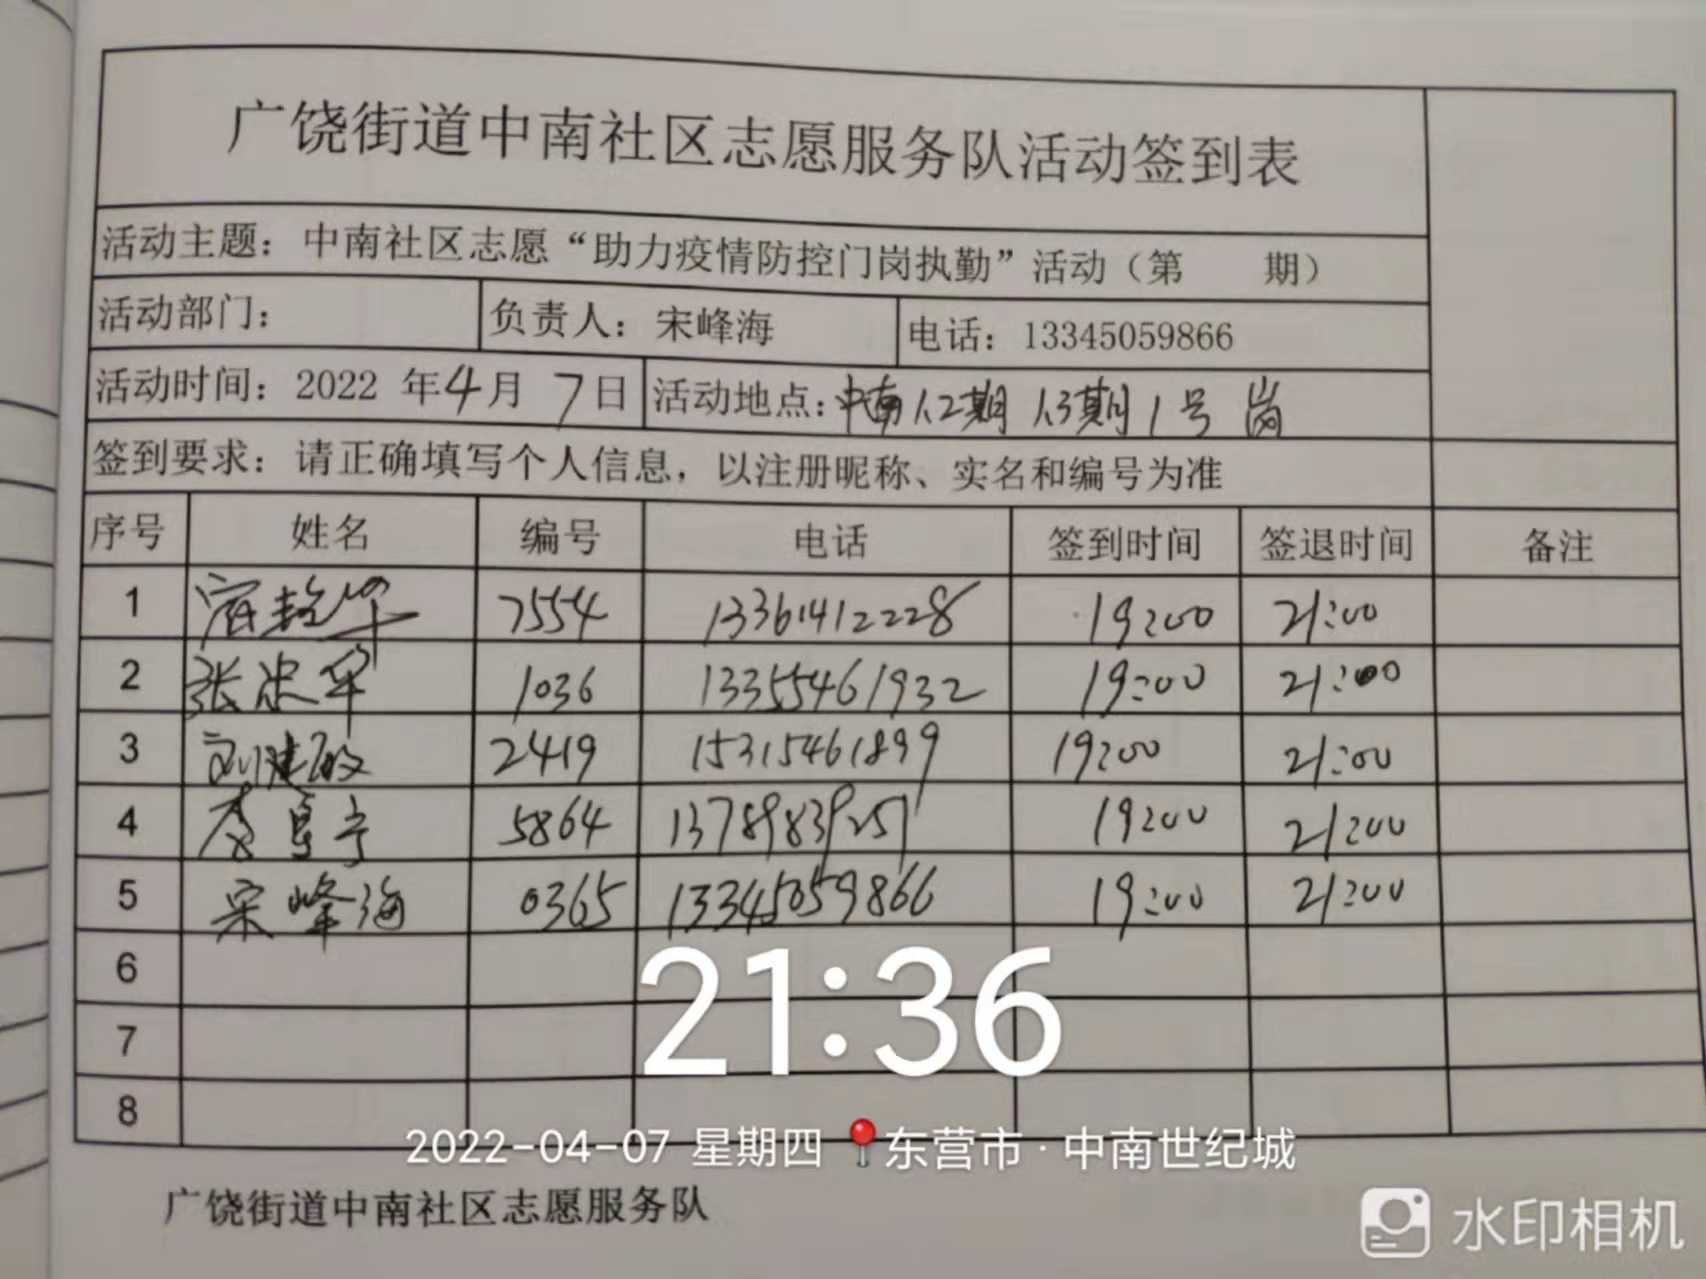 广饶街道中南社区志愿服务队活动签到表
活动主题：中南社区志愿“助力疫情防控门岗执勤”活动（第 期）
活动部门： 负责人：宋峰海 电话：13345059866
活动时间：2022 年4月 7日 活动地点：中南1.2期 1.3期1号 岗
签到要求：请正确填写个人信息，以注册昵称、实名和编号为准
序号 姓名 编号 电话 签到时间 签退时间 备注
1 7554 13361412228 19:00 21:00
2 张忠军 1036 13355461932 19:00 21:00
3 刘建政 2419 15315461899 19:00 21:00
4 5864 13789839251 19:00 21:00
5 宋峰海 0365 13345059866 19:00 21:00
6
7
8
21:36
2022-04-07 星期四 东营市·中南世纪城
广饶街道中南社区志愿服务队
水印相机